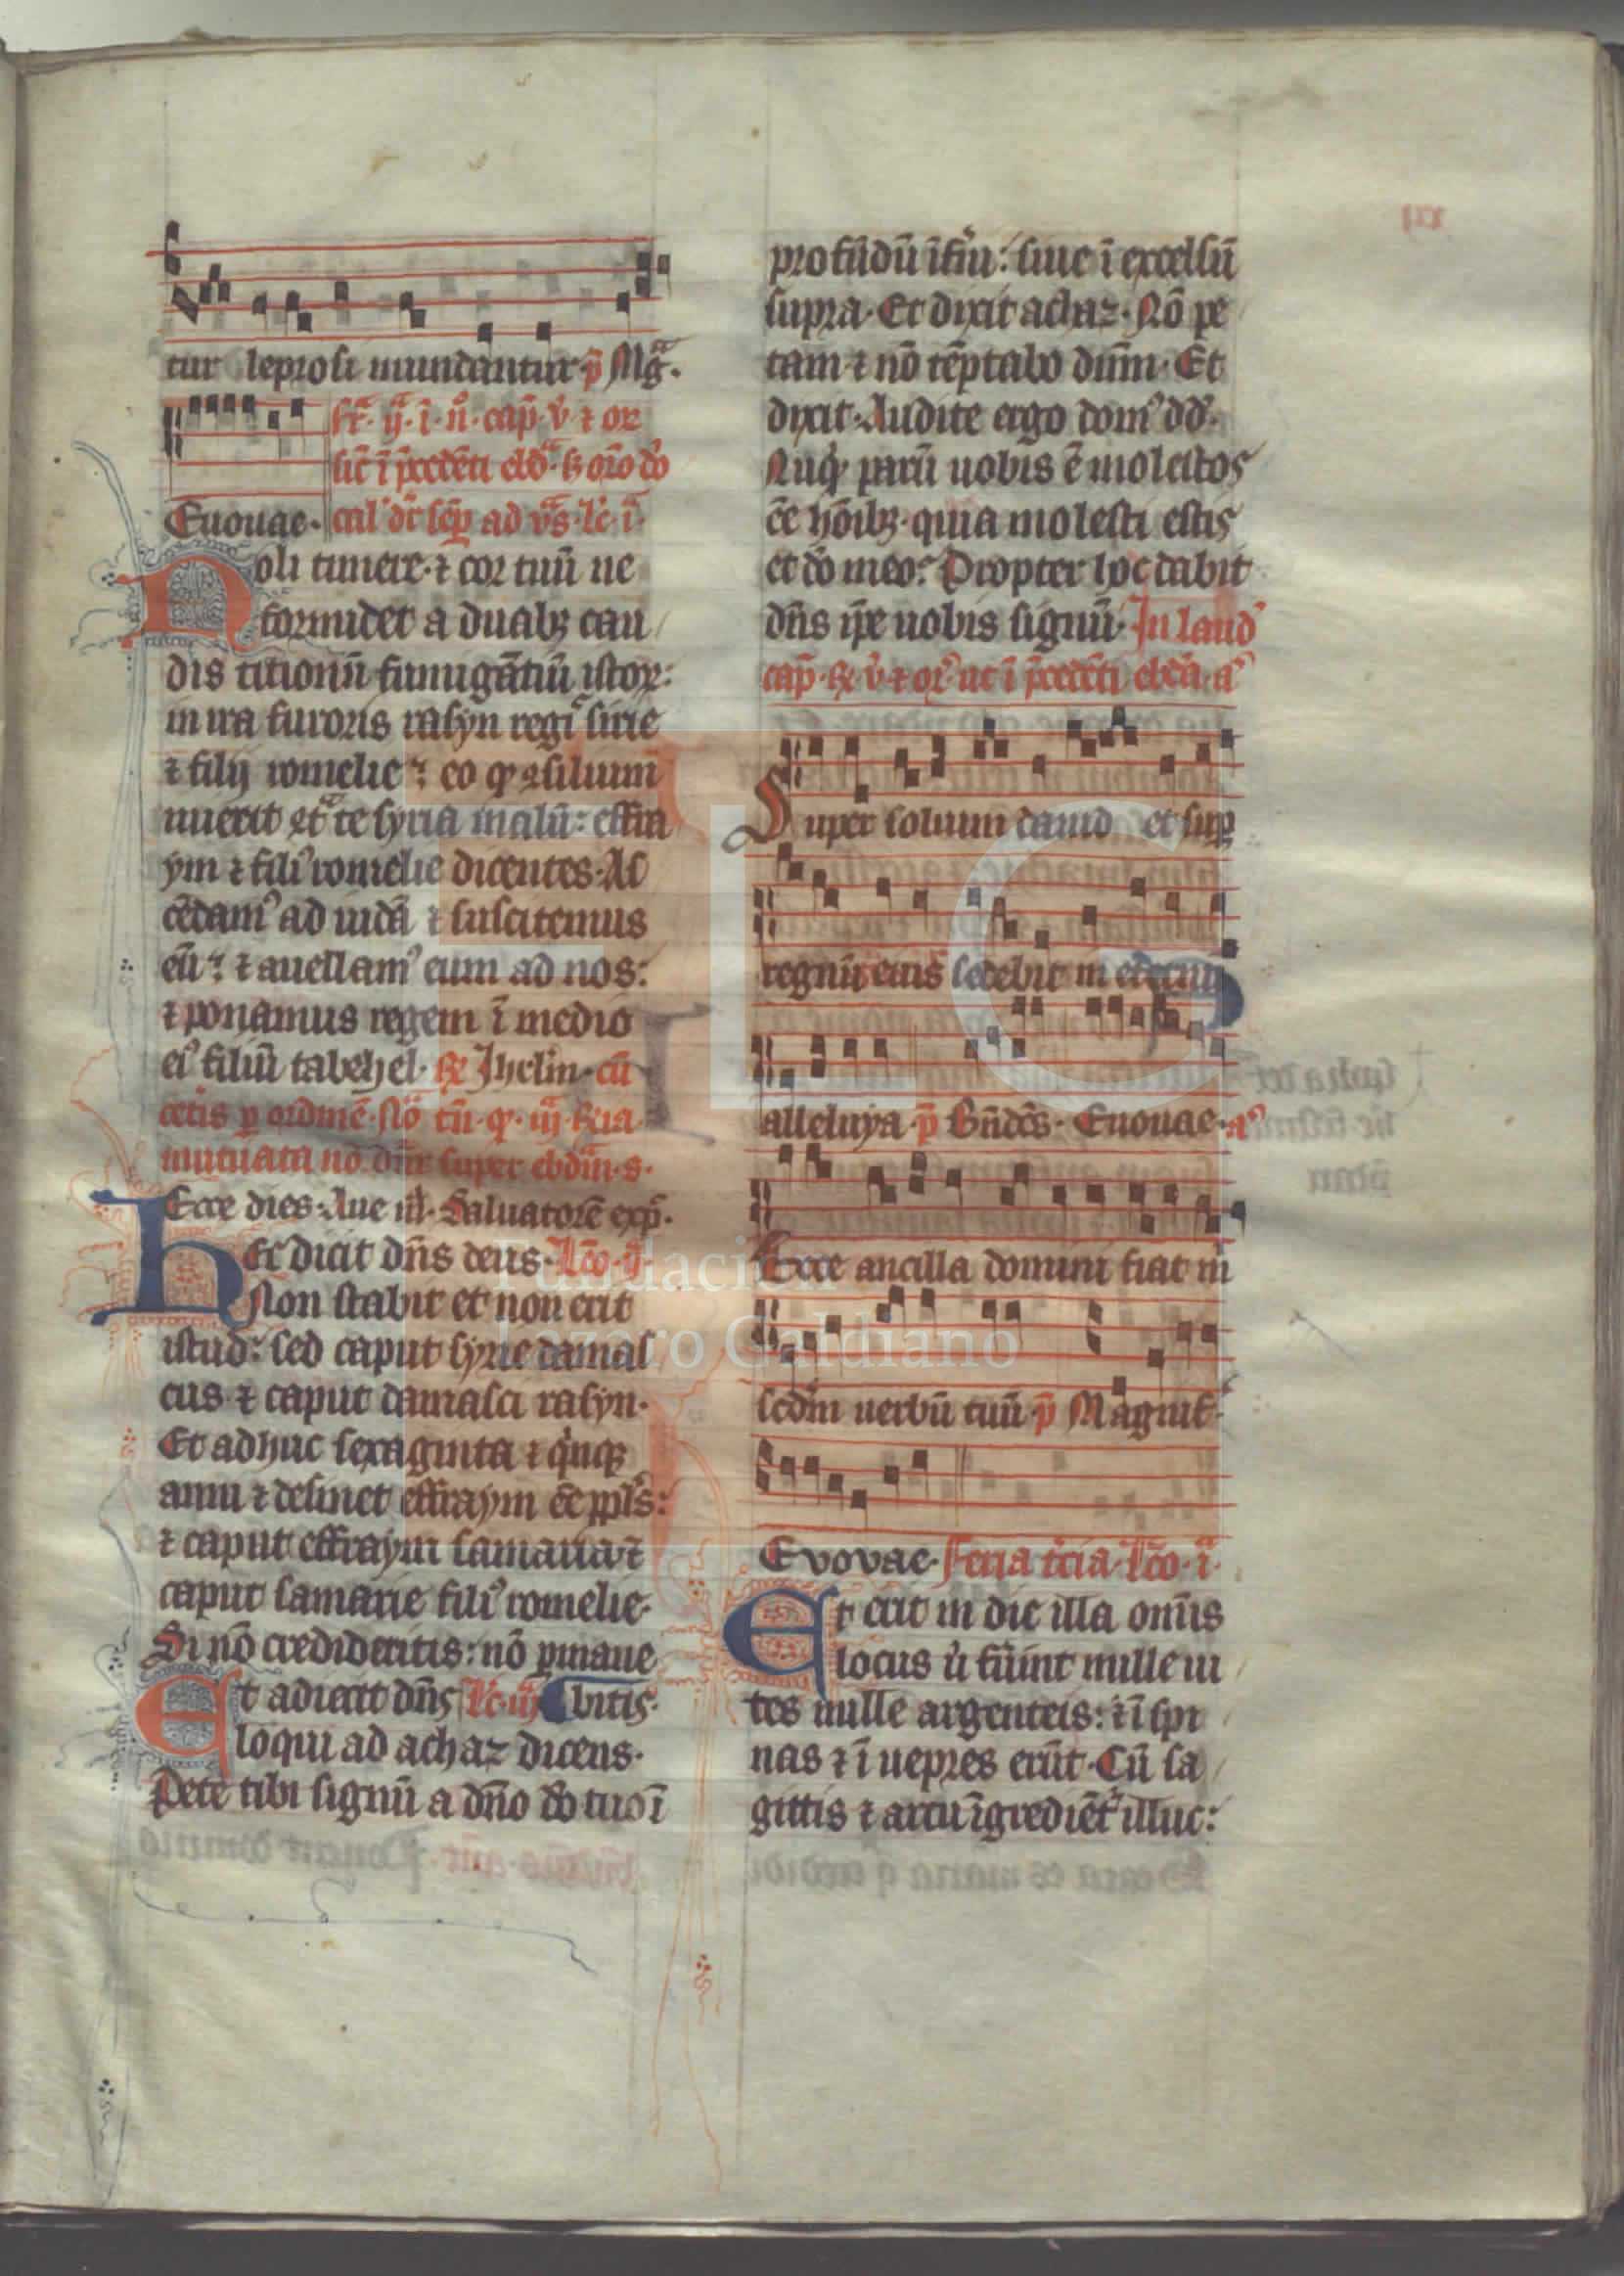 tur leprosi mundantur. p̄ Mg̃.
fr̃. ij.ª ĩ. n̊. cap̃. v̊. ⁊ or
sic̃ ĩ p̃cedẽti ebd.ª
Euouae.
Noli timere. ⁊ cor tuũ ne
formidet a duabꝫ cau
dis titionũ fumigãtiũ istoꝝ:
in ira furoris rasyn regiˢ sirie
⁊ filij romelie: eo qꝫ ꝯsilium
inierit ꝯt̃ te syria malũ: effra
ym ⁊ filiꝰ romelie dicentes. As
cẽdamꝰ ad iudã ⁊ suscitemus
eũ: ⁊ auellamꝰ eum ad nos:
⁊ ponamus regem ĩ medio
eiꝰ filiũ tabehel. ℟ Jhrlm̃. cũ
cet̃is ꝑ ordinẽ. Nõ tñ. qꝫ. iij. f̃ia
mutuata nõ dr̃ super ebdm̃. s.
Ecce dies. Aue m̃. Saluatorẽ exp̃.
Hec dicit dñs deus. Lc̃o. ij.
Non stabit et non erit
istud: sed caput syrie damas
cus ⁊ caput damasci rasyn.
Et adhuc sexaginta ⁊ q̇nqꝫ
anni ⁊ desinet effraym ẽe pplˢ:
⁊ caput effraym samaria ⁊
caput samarie filiꝰ romelie.
Si nõ credideritis: nõ ꝑmane
Et adiecit dñs Lc̃. iij. bitis.
loqui ad achaz dicens.
Pete tibi signũ a dño dõ tuo ĩ
profũdũ ĩfr̃ni: siue ĩ excelsũ
supra. Et dixit achaz. Nõ pe
tam ⁊ nõ tẽptabo dñm. Et
dixit. Audite ergo domꝰ dd̃.
Nũqͥd parũ uobis ẽ molestos
ẽe hõibꝫ. quia molesti estis
et dõ meo? Propter hoc dabit
dñs ip̃e uobis signũ. In laud̃
cap̃. ℟. v̊. ⁊ or̃. ut ĩ p̃cedẽti ebdã. aꝰ
Super solium dauid et suꝑ
regnũ eius sedebit in eternũ
alleluya. p̄ Bñdc̃s. Euouae. aꝰ
Ecce ancilla domini fiat m̊
scdm̃ uerbũ tuũ p̄ Magnif̃.
Evovae. Feria t̃cia. Lc̃o. i.
Et erit in die illa om̃is
locus ů fũint mille ui
tes mille argenteis: ⁊ ĩ spi
nas ⁊ ĩ uepres erũt. Cũ sa
gittis ⁊ arcu ĩgrediẽt̃ illuc:
Fundación
Lázaro Galdiano